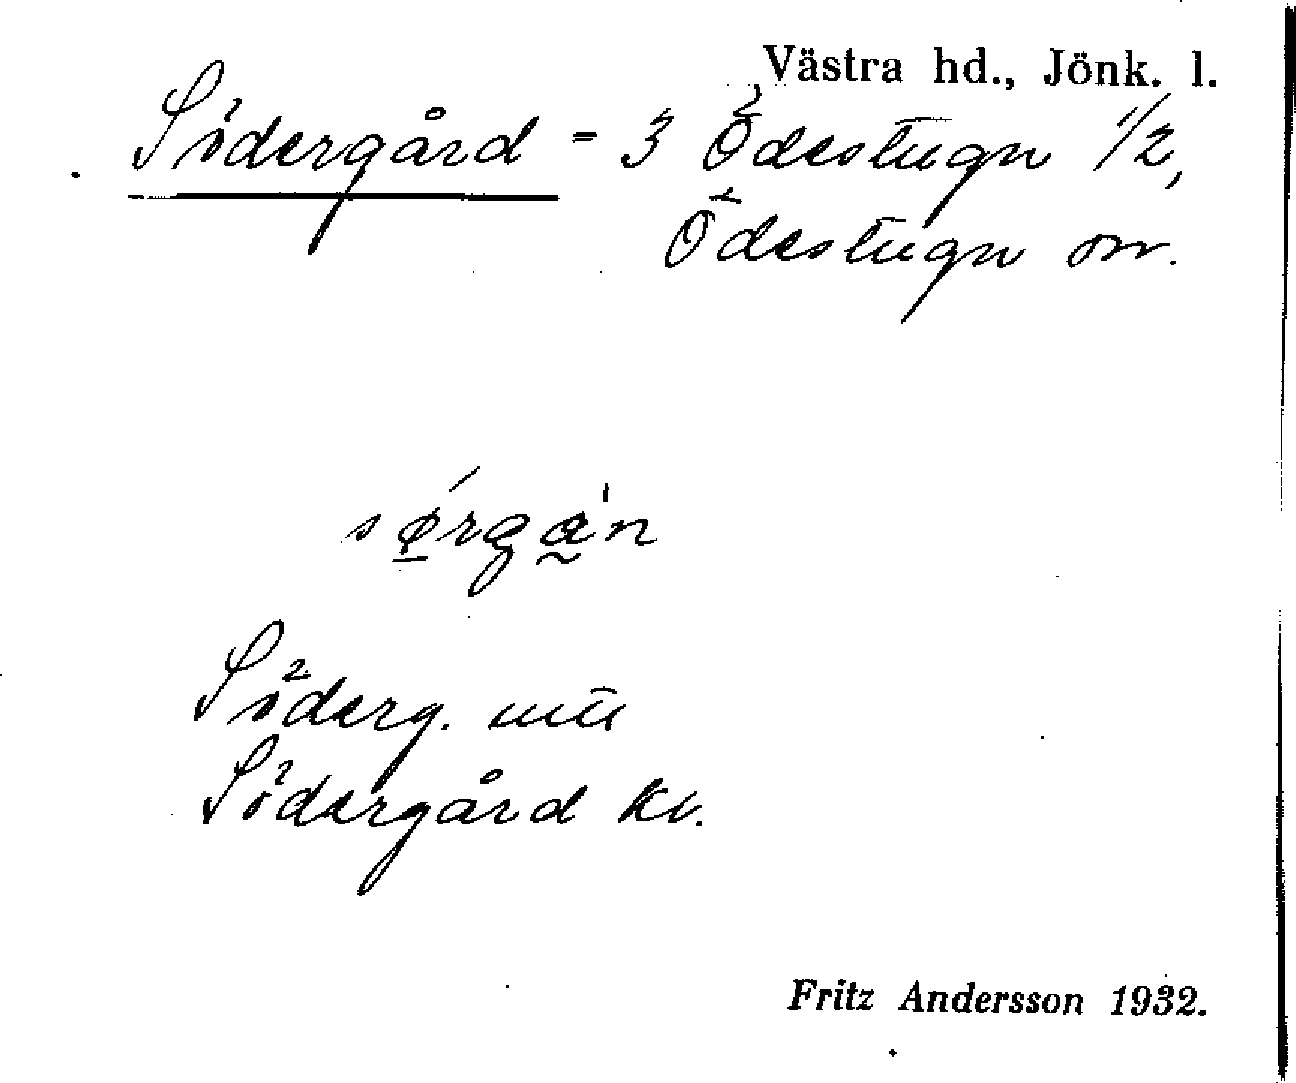 Västra hd., Jönk. l.
Södergård = 3 Ödestugu 1/2,
Ödestugu sn.
Söderg. utä
Södergård kv.
Fritz Andersson 1932.